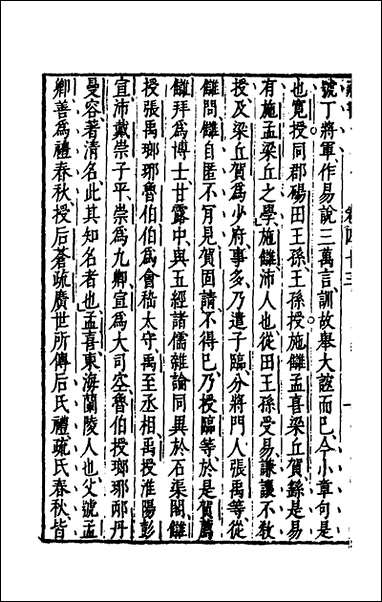 號丁將軍作易說三萬言訓故舉大誼而已今小章句是
也寬授同郡碭田王孫王孫授施讎孟喜梁丘賀繇是易
有施孟梁丘之學施讎沛人也從田王孫受易謙讓不敎
授及梁丘賀爲少府事多乃遣子臨分將門人張禹等從
讎問讎自匿不肎見賀固請不得已乃授臨等於是賀薦
讎拜爲博士甘露中與五經諸儒雜論同異於石渠閣讎
授張禹瑯琊魯伯伯爲會稽太守禹至丞相禹授淮陽彭
宣沛戴崇子平崇爲九卿宣爲大司空魯伯授瑯琊邴丹
曼容著清名此其知名者也孟喜東海蘭陵人也父號孟
卿善爲禮春秋授后蒼疏廣世所傳后氏禮疏氏春秋皆